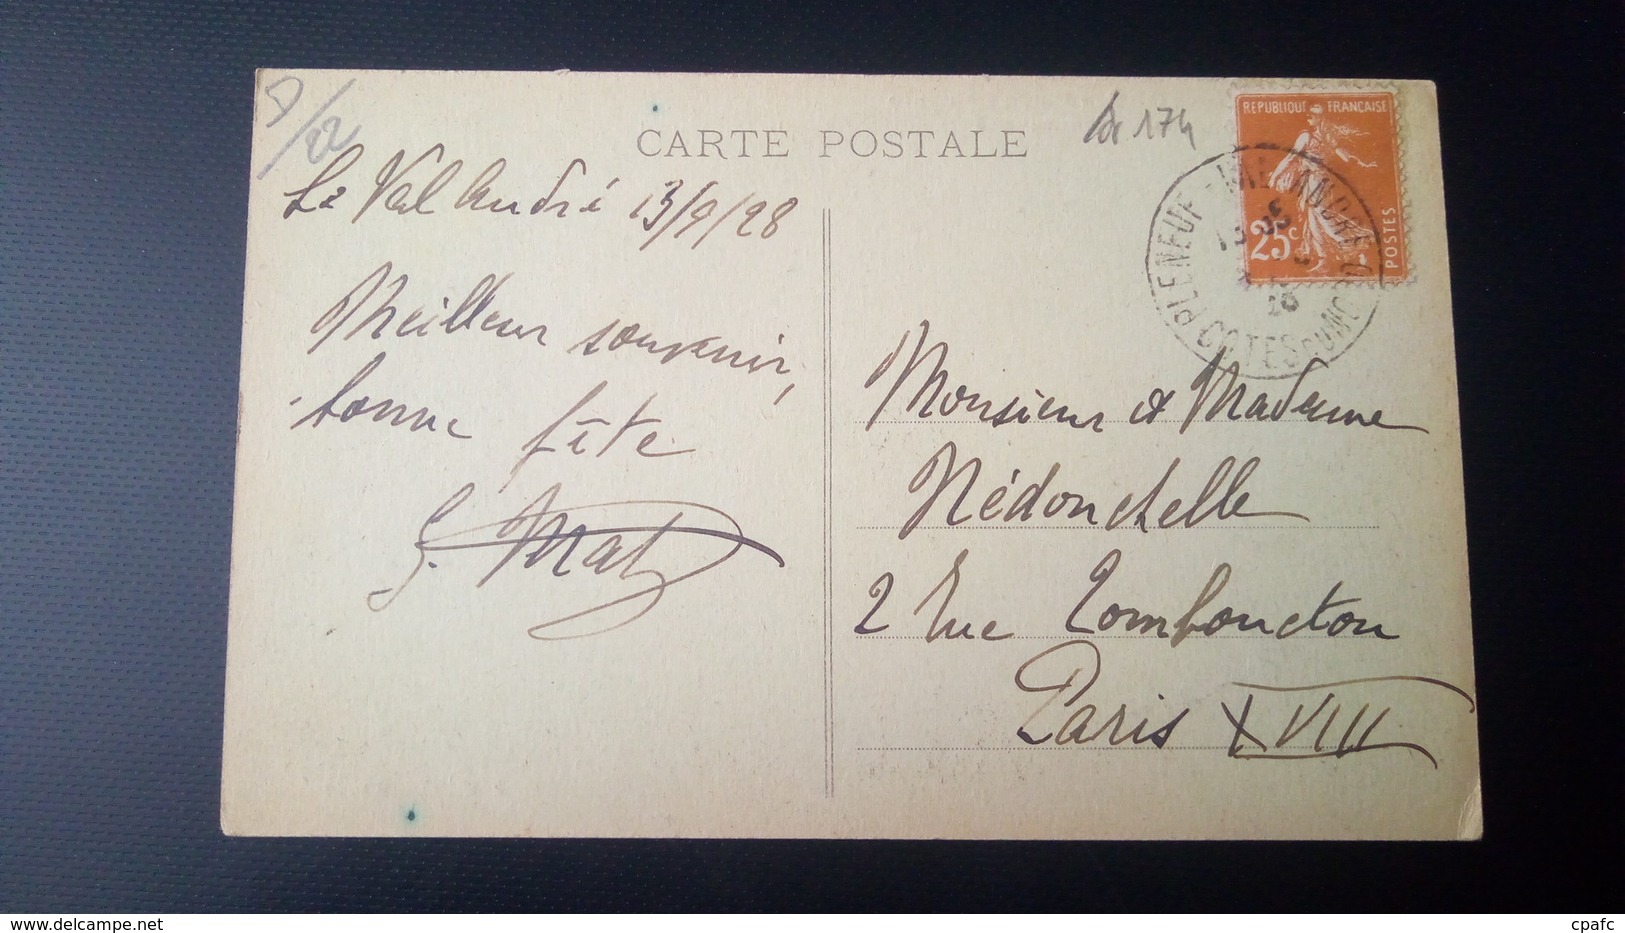 CARTE POSTALE
174
Le Val André 13/9/28
Meilleur souvenir,
bonne fête
G. Mat
REPUBLIQUE FRANÇAISE
25c
POSTES
PLENEUF-VAL-ANDRE
COTES DU NORD
Monsieur et Madame
Nédonchelle
2 rue Tombouctou
Paris XVIII
cpafc